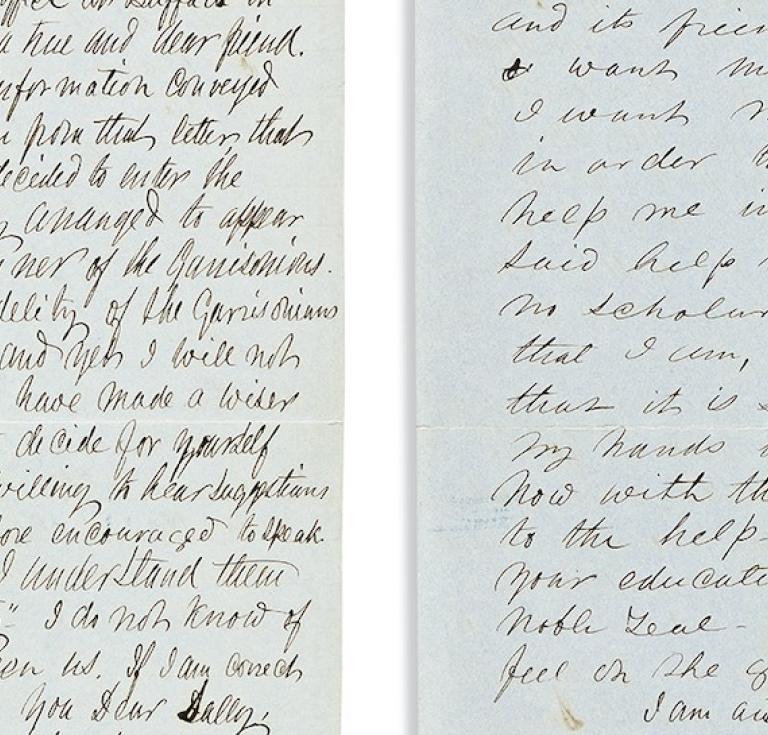 a true and dear friend.
information conveyed
from that letter that
decided to enter the
arranged to appear
ner of the Garrisonians.
delity of the Garrisonians
and yet I will not
have made a wiser
decide for yourself
willing to hear suggestions
ore encouraged to speak.
I understand them
" I do not know of
en us. If I am correct
you Dear Sally,
and its frien
want m
I want
in order
help me in
said help
no scholar
that I am,
that it is
my hands
now with th
to the help-
your educati
noble Zeal -
feel on the
I am au